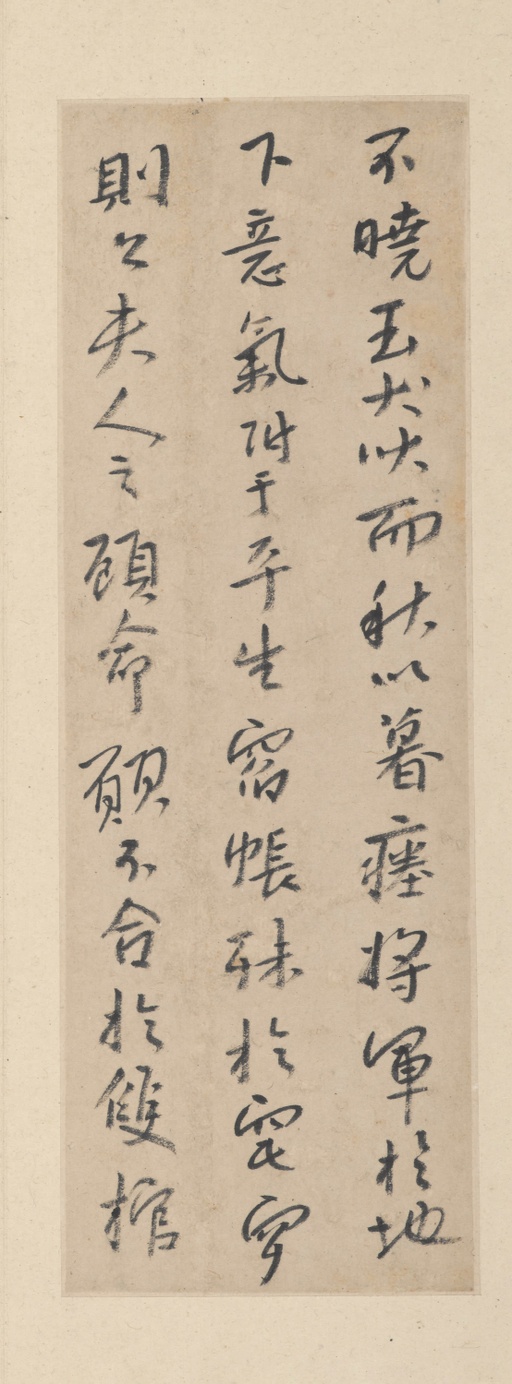 不曉玉犬吠而秋以暮瘞將軍於地
下意氣附于平生窗帳殊於窀穸
則公夫人之顧命願不合於雙棺